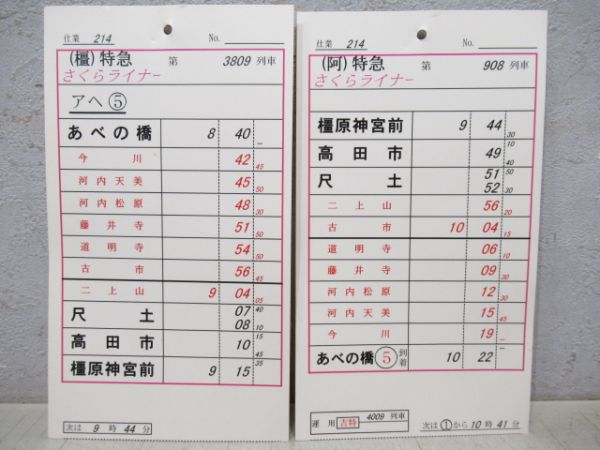 仕業 214 No.
(橿)特急 第 3809 列車
さくらライナー
アヘ ⑤
あべの橋 8 40 —
今川 42 45
河内天美 45 50
河内松原 48 30
藤井寺 51 50
道明寺 54 50
古市 56 45
二上山 9 04 05
尺土 07 40
08 10
高田市 15
10 45
橿原神宮前 9 15 35
次は 9 時 44 分
仕業 214 No.
(阿)特急 第 908 列車
さくらライナー
橿原神宮前 9 44 30
高田市 10
49 40
尺土 51 50
52 30
二上山 56 20
古市 10 04 15
道明寺 06 10
藤井寺 09 30
河内松原 12 30
河内天美 15 45
今川 19 —
あべの橋 ⑤ 到着 10 22 —
運用 古特 4009 列車
次は ① から 10 時 41 分